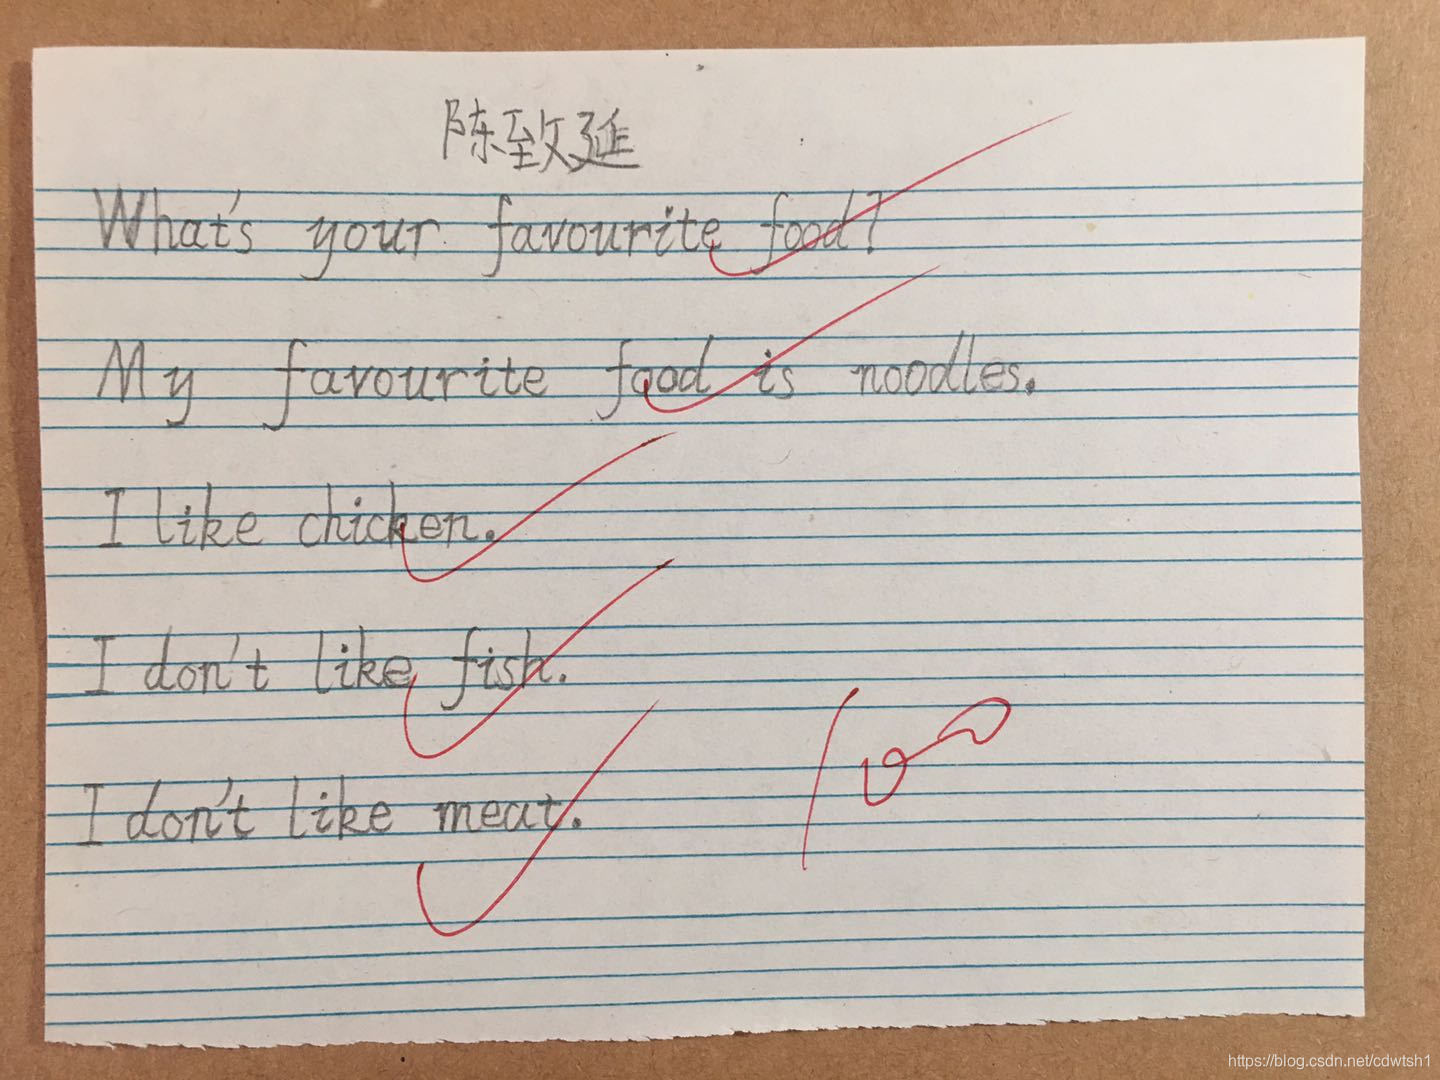 陈致延
What's your favourite food?
My favourite food is noodles.
I like chicken.
I don't like fish.
I don't like meat.
100
https://blog.csdn.net/cdwtsh1